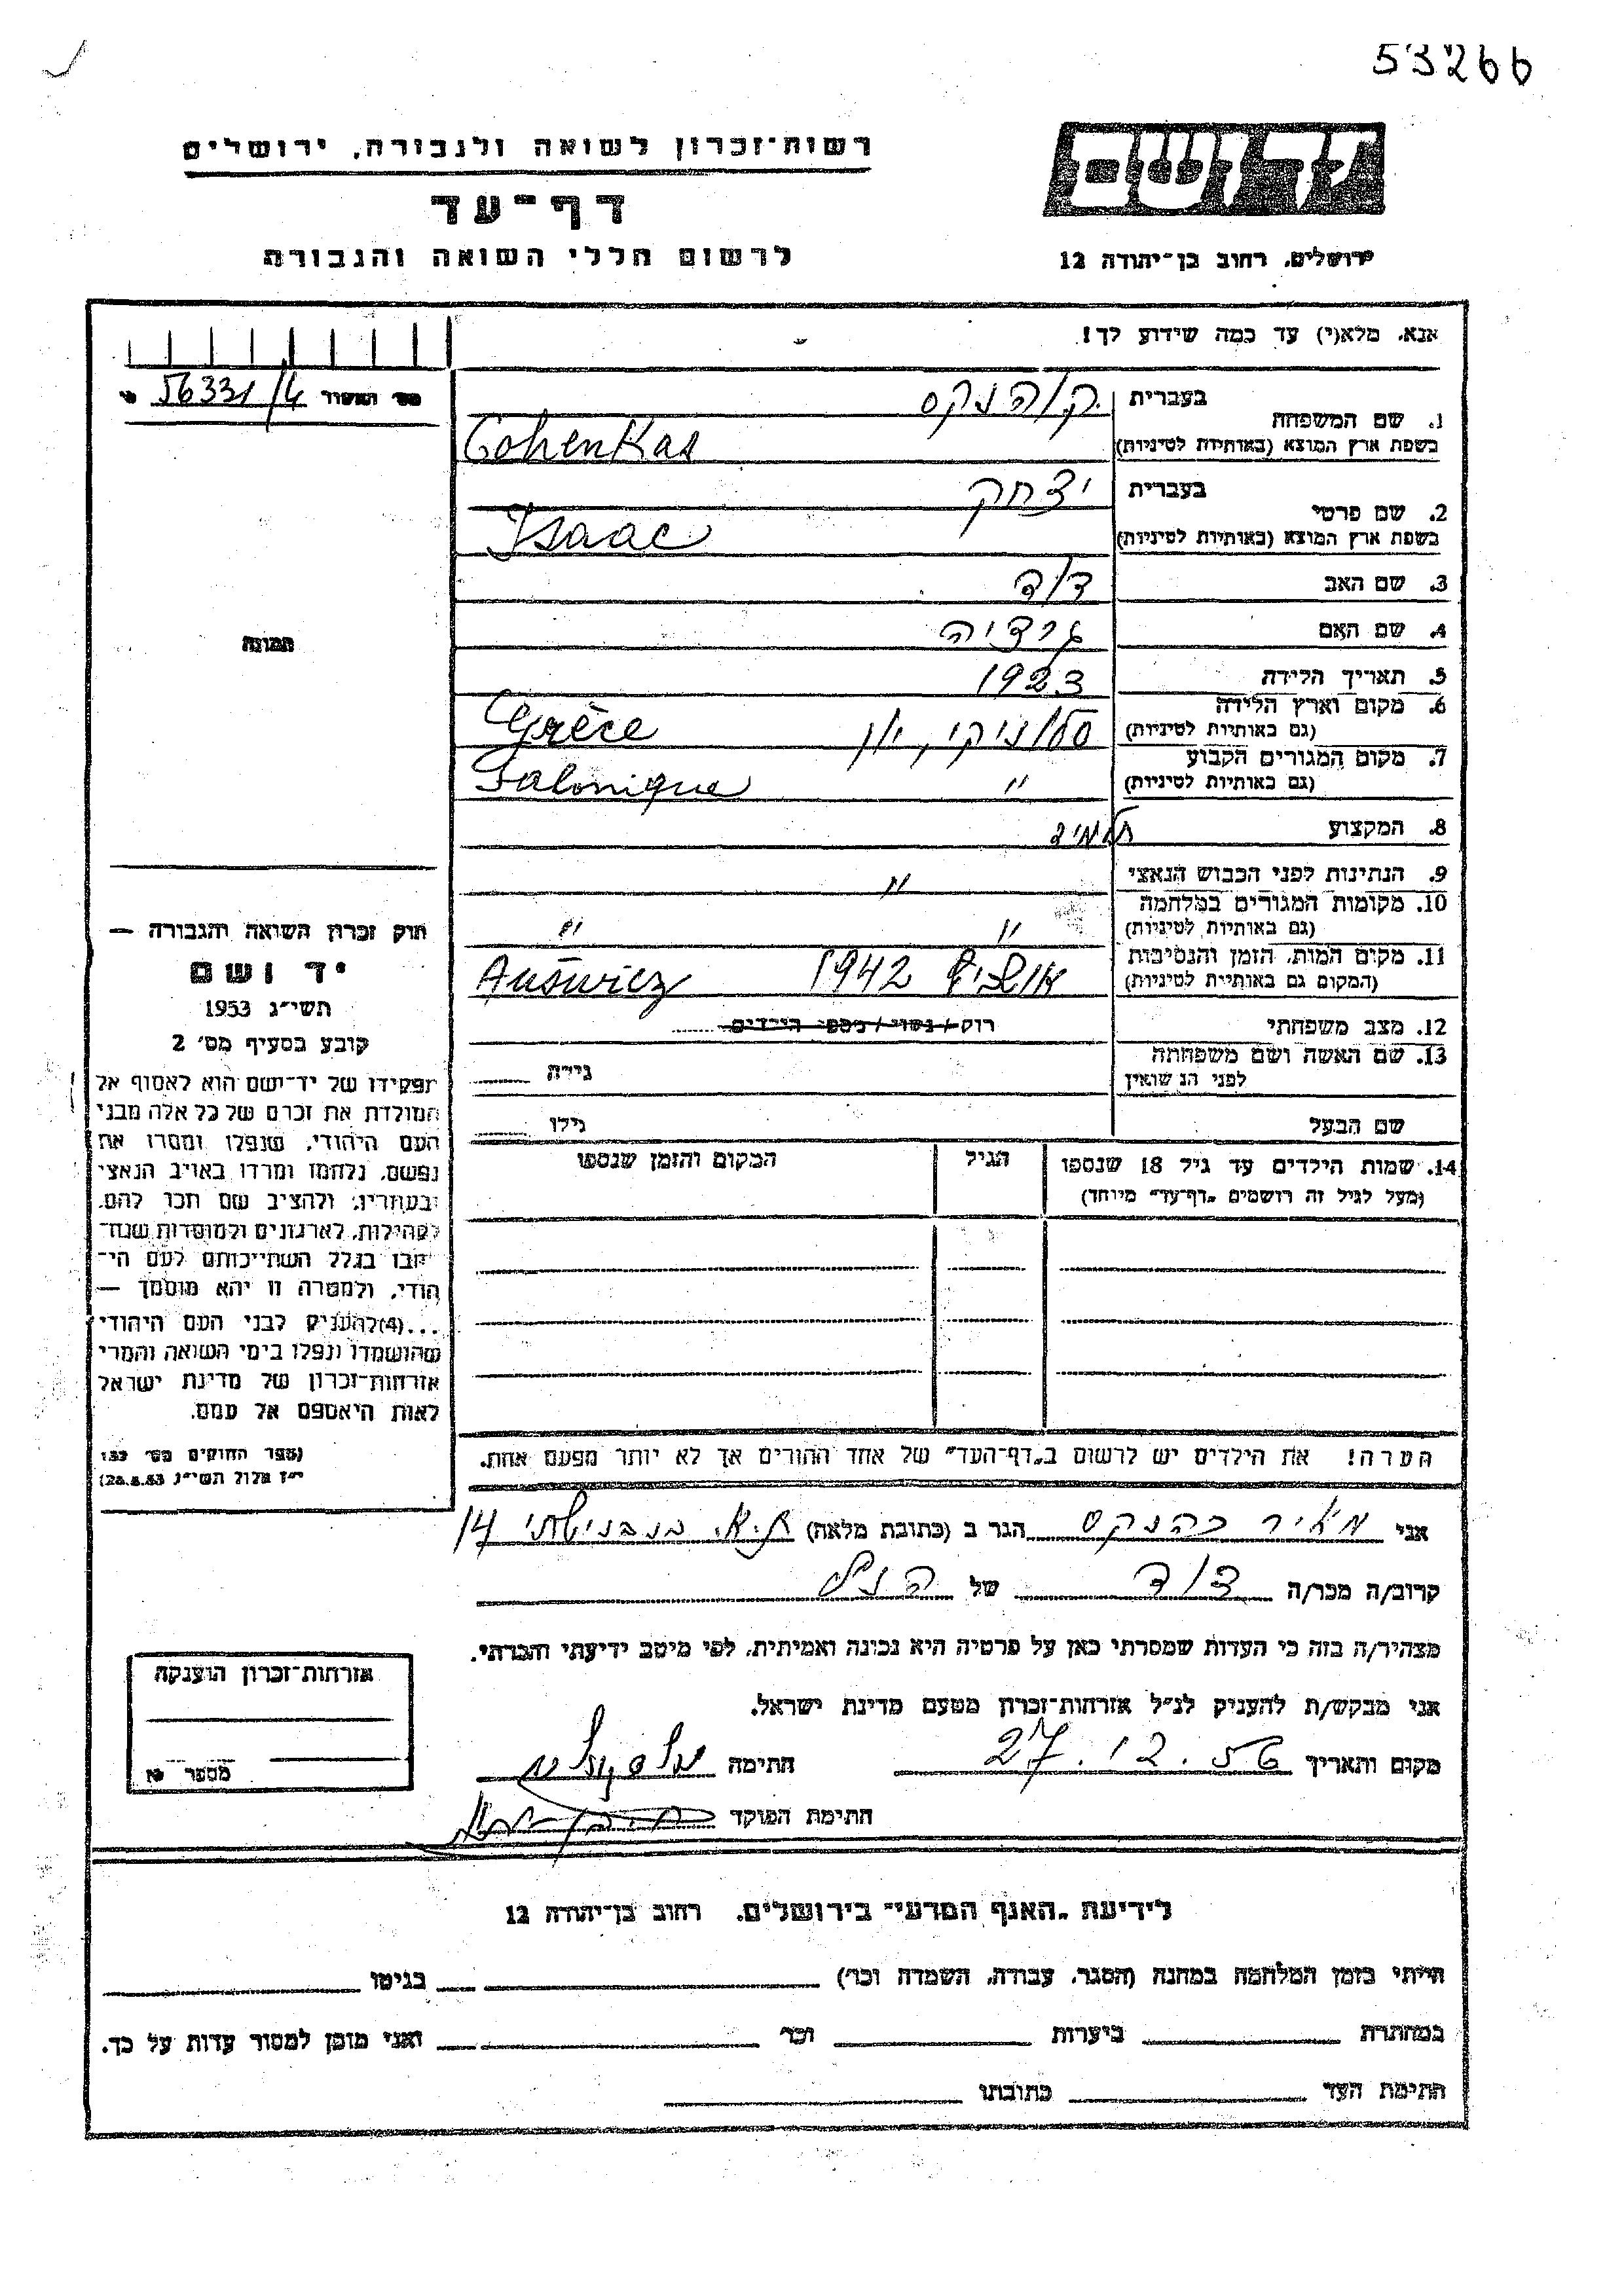 53266
רשות־זכרון לשואה ולגבורה, ירושלים
דף־עד
לרשום חללי השואה והגבורה
ידושם
ירושלים, רחוב בן־יהודה 12
אנא, מלא(י) עד כמה שידוע לך!
56331/4
1. שם המשפחה
בעברית
קוהנקס
בשפת ארץ המוצא (באותיות לטיניות)
CohenKas
2. שם פרטי
בעברית
יצחק
בשפת ארץ המוצא (באותיות לטיניות)
Isaac
3. שם האב
דוד
4. שם האם
גרציה
5. תאריך הלידה
1923
6. מקום וארץ הלידה
(גם באותיות לטיניות)
סלוניקי, יון Grèce
7. מקום המגורים הקבוע
(גם באותיות לטיניות)
" Salonique
8. המקצוע
תלמיד
9. הנתינות לפני הכבוש הנאצי
"
10. מקומות המגורים במלחמה
(גם באותיות לטיניות)
" "
11. מקום המות, הזמן והנסיבות
(המקום גם באותיות לטיניות)
אושביץ 1942 Auswicz
12. מצב משפחתי
רוק / נשוי / מספר הילדים
13. שם האשה ושם משפחתה
לפני הנישואין
גילה
שם הבעל
גילו
14. שמות הילדים עד גיל 18 שנספו
(מעל לגיל זה רושמים "דף־עד" מיוחד)
הגיל
המקום והזמן שנספו
הערה! את הילדים יש לרשום ב"דף־העד" של אחד ההורים אך לא יותר מפעם אחת.
תמונה
חוק זכרון השואה והגבורה —
יד ושם
תשי״ג 1953
קובע בסעיף מס׳ 2
תפקידו של יד־ושם הוא לאסוף אל
המולדת את זכרם של כל אלה מבני
העם היהודי, שנפלו ומסרו את
נפשם, נלחמו ומרדו באויב הנאצי
ובעוזריו, ולהציב שם וזכר להם,
לקהילות, לארגונים ולמוסדות שנח־
רבו בגלל השתייכותם לעם הי־
הודי, ולמטרה זו יהא מוסמך —
...(4)להעניק לבני העם היהודי
שהושמדו ונפלו בימי השואה והמרי
אזרחות־זכרון של מדינת ישראל
לאות היאספם אל עמם.
(ספר החוקים מס׳ 132
י״ז אלול תשי״ג 28.8.53)
אני מאיר כהנקס הגר ב (כתובת מלאה) ת.א. 14
קרוב/ה מכר/ה דוד של הנ״ל
מצהיר/ה בזה כי העדות שמסרתי כאן על פרטיה היא נכונה ואמיתית, לפי מיטב ידיעתי והכרתי.
אני מבקש/ת להעניק לנ״ל אזרחות־זכרון מטעם מדינת ישראל.
מקום ותאריך 27.12.56 חתימה
חתימת הפוקד
אזרחות־זכרון הוענקה
מספר
לידיעת "האגף המדעי" בירושלים, רחוב בן־יהודה 12
הייתי בזמן המלחמה במחנה (הסגר, עבודה, השמדה וכו׳) בגיטו
במחתרת ביערות וכו׳ ואני מוכן למסור עדות על כך.
חתימת העד כתובתו